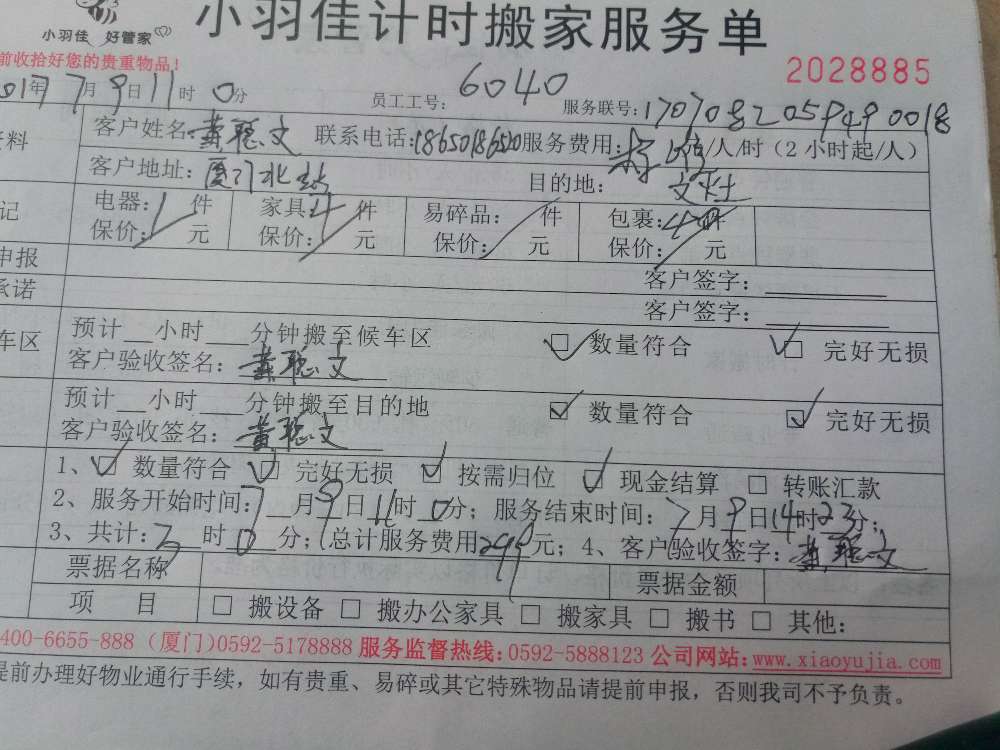 小羽佳计时搬家服务单
小羽佳 好管家
前收拾好您的贵重物品!
2028885
2017年7月9日11时0分 员工工号: 6040 服务联号: 1707082059490018
资料 客户姓名: 黄聪文 联系电话: 18650186520 服务费用: 元/人/时(2小时起/人)
客户地址: 厦门北站 目的地: 文灶
记 电器: 1件 家具: 4件 易碎品: 件 包裹: 4件
保价: 元 保价: 元 保价: 元 保价: 元
申报 客户签字:
承诺 客户签字:
车区 预计__小时___分钟搬至候车区 ☑ 数量符合 ☑ 完好无损
客户验收签名: 黄聪文
预计__小时___分钟搬至目的地 ☑ 数量符合 ☑ 完好无损
客户验收签名: 黄聪文
1、☑ 数量符合 ☑ 完好无损 ☑ 按需归位 ☑ 现金结算 □ 转账汇款
2、服务开始时间: 7月9日11时0分; 服务结束时间: 7月9日14时23分;
3、共计: 3时0分; (总计服务费用299元; 4、客户验收签字: 黄聪文
票据名称 票据金额
项 目 □ 搬设备 □ 搬办公家具 □ 搬家具 □ 搬书 □ 其他:
400-6655-888 (厦门)0592-5178888 服务监督热线:0592-5888123 公司网站:www.xiaoyujia.com
提前办理好物业通行手续，如有贵重、易碎或其它特殊物品请提前申报，否则我司不予负责。